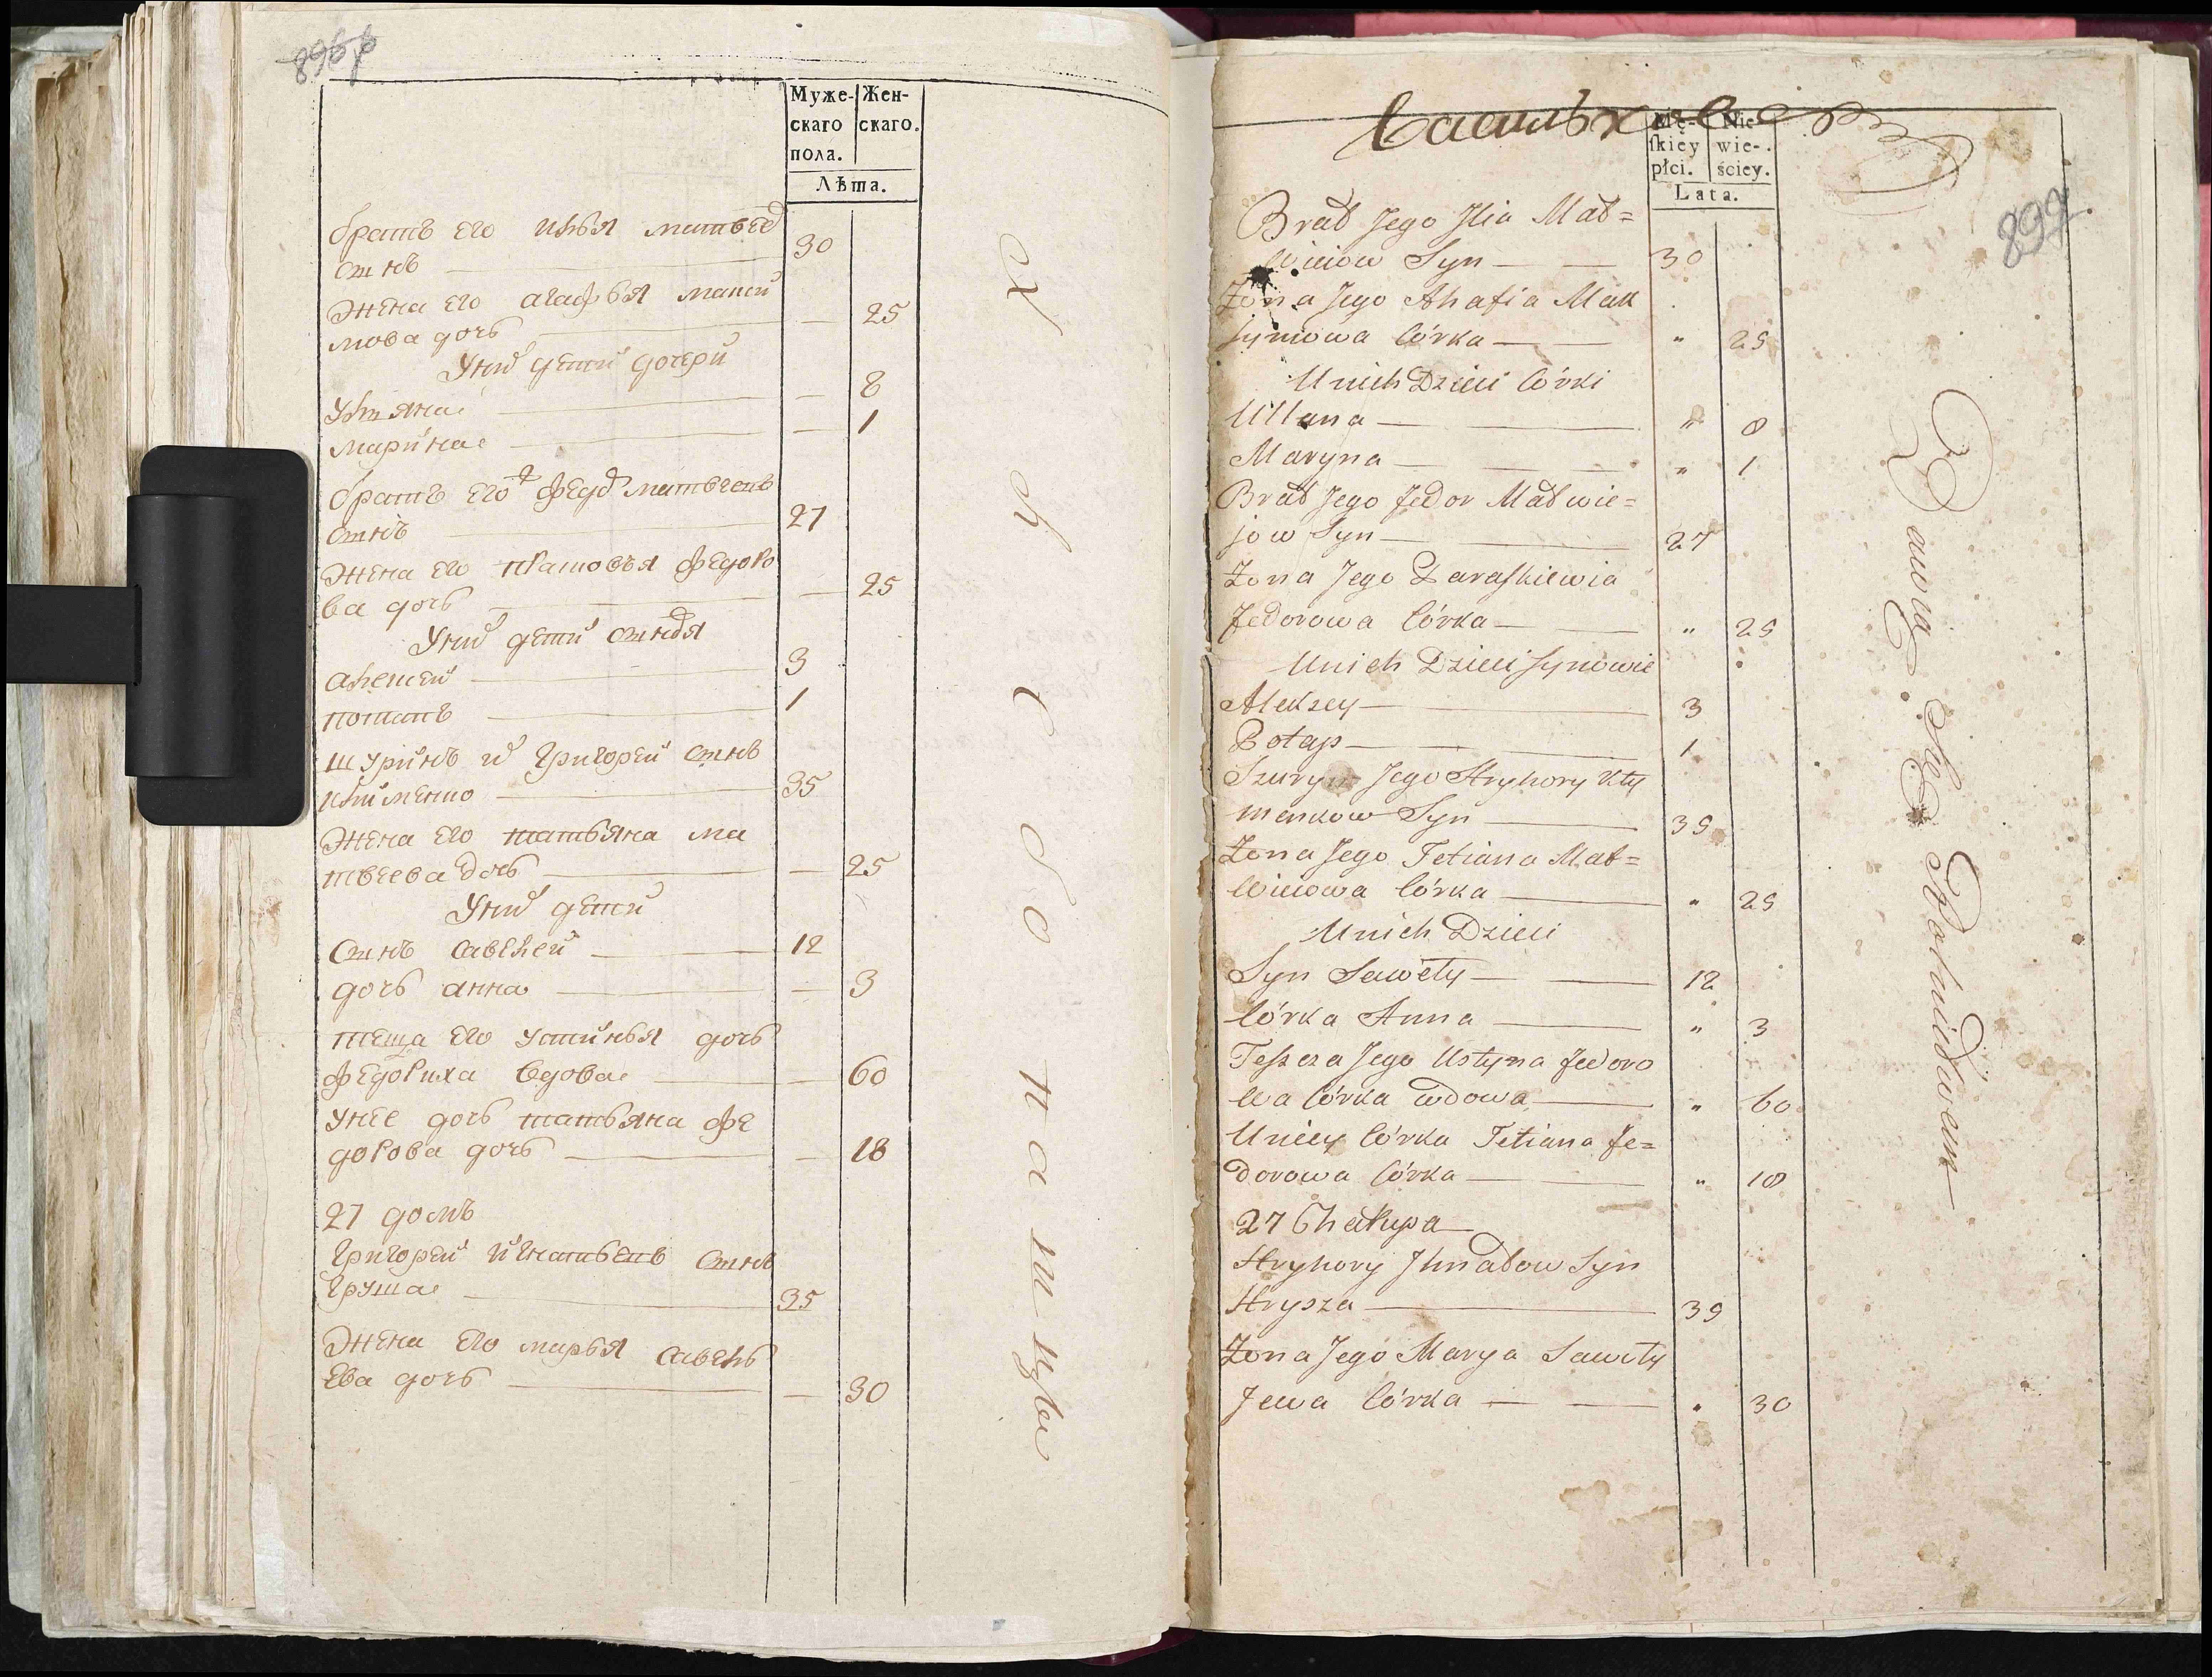 Муже-
скаго
пола.
Жен-
скаго.
Лѣта.
братъ его илья матвѣев
сынъ 30
жена его агафья макси
мова дочь — 25
У них дети дочери
ульяна — 8
марина — 1
братъ его федор матвеевъ
сынъ 27
жена его прасковья федоро
ва дочь — 25
У них дети сыновья
алексей 3
потапъ 1
шуринъ ево григорей сынъ
клименко 35
жена его татьяна ма
твеева дочь — 25
У них дети
сынъ савелей 12
дочь анна — 3
теща его устинья дочь
федориха вдова — 60
у нее дочь татьяна фе
дорова дочь — 18
27 домъ
григорей игнатьевъ сынъ
груша 35
жена его марья савель
ева дочь — 30
897
Mę-
skiey
płci.
Nie
wie-
ściey.
Lata.
Brat Jego Jlia Mat=
wiiow Syn — 30
Zona Jego Ahafia Mak
symowa Córka — " 25
Unich Dzieci Córki
Ullana — " 8
Maryna — " 1
Brat Jego Fedor Matwie=
jow Syn — 27
Zona Jego Paraskiewia
Fedorowa Córka — " 25
Unich Dzieci Synowie
Aleksey — 3
Potap — 1
Szuryn Jego Hryhory Kły
menkow Syn — 35
Zona Jego Tetiana Mat=
wiiowa Córka — " 25
Unich Dzieci
Syn Sawety — 12
Córka Anna — " 3
Teszcza Jego Ustyna Fedoro
wa Córka wdowa — " 60
Unieij Córka Tetiana Fe=
dorowa Córka — " 18
27 Chałupa
Hryhory Jhnatow Syn
Hrysza — 35
Zona Jego Marya Sawely
Jewa Córka — " 30